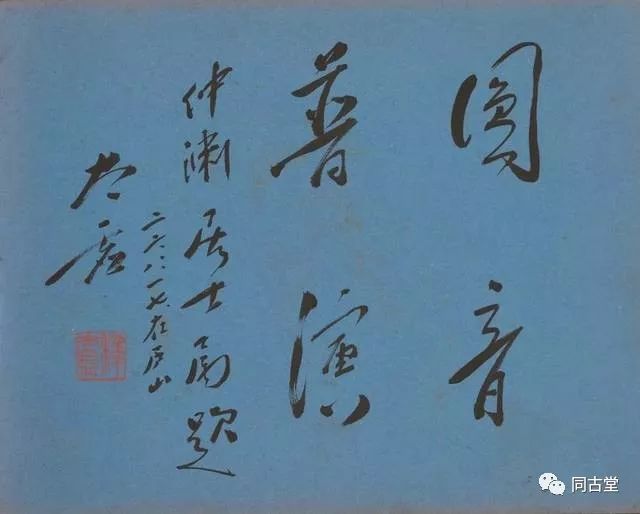 圓音
普演
仲居士属題
二六、八、一七、在庐山
太虛
同古堂